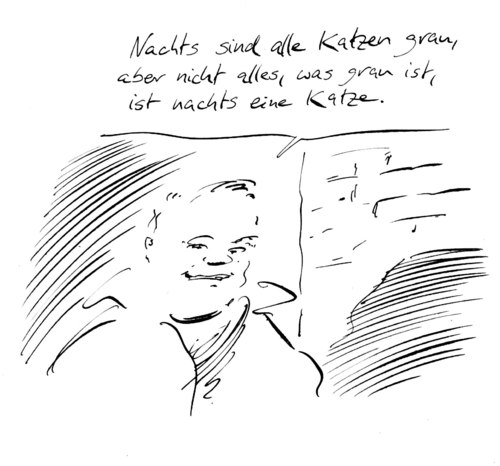 Nachts sind alle Katzen grau,
aber nicht alles, was grau ist,
ist nachts eine Katze.